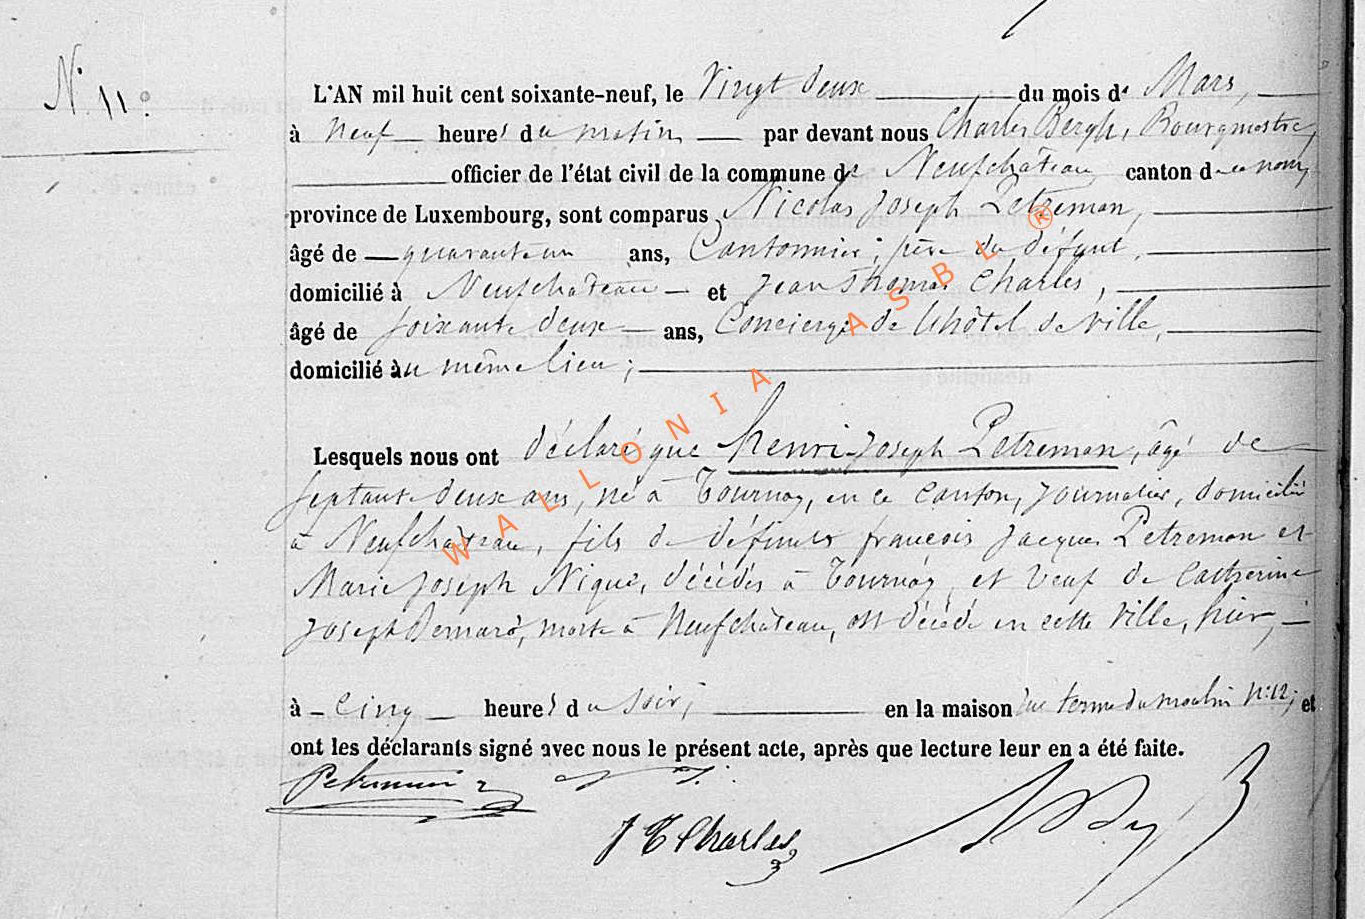 N° 11:
L'AN mil huit cent soixante-neuf, le Vingt deux du mois de Mars,
à neuf heures du matin par devant nous Charles Bergh, Bourgmestre,
officier de l'état civil de la commune de Neufchâteau canton de ce nom,
province de Luxembourg, sont comparus Nicolas Joseph Petreman,
âgé de quarante un ans, Cantonnier, père du défunt,
domicilié à Neufchâteau et Jean Thomas Charles,
âgé de soixante deux ans, Concierge de l'hôtel de ville,
domicilié au même lieu;
Lesquels nous ont déclaré que henri Joseph Petreman, âgé de
septante deux ans, né à Tournay, en ce canton, journalier, domicilié
à Neufchâteau, fils de défunts françois Jacques Petreman et
Marie Joseph Nique, décédés à Tournay, et veuf de Catherine
Joseph Demard, morte à Neufchâteau, est décédé en cette ville, hier,
à cinq heures du soir, en la maison terme du moulin N:12; et
ont les déclarants signé avec nous le présent acte, après que lecture leur en a été faite.
Petreman N J.
J T Charles
WALLONIA ASBL ®